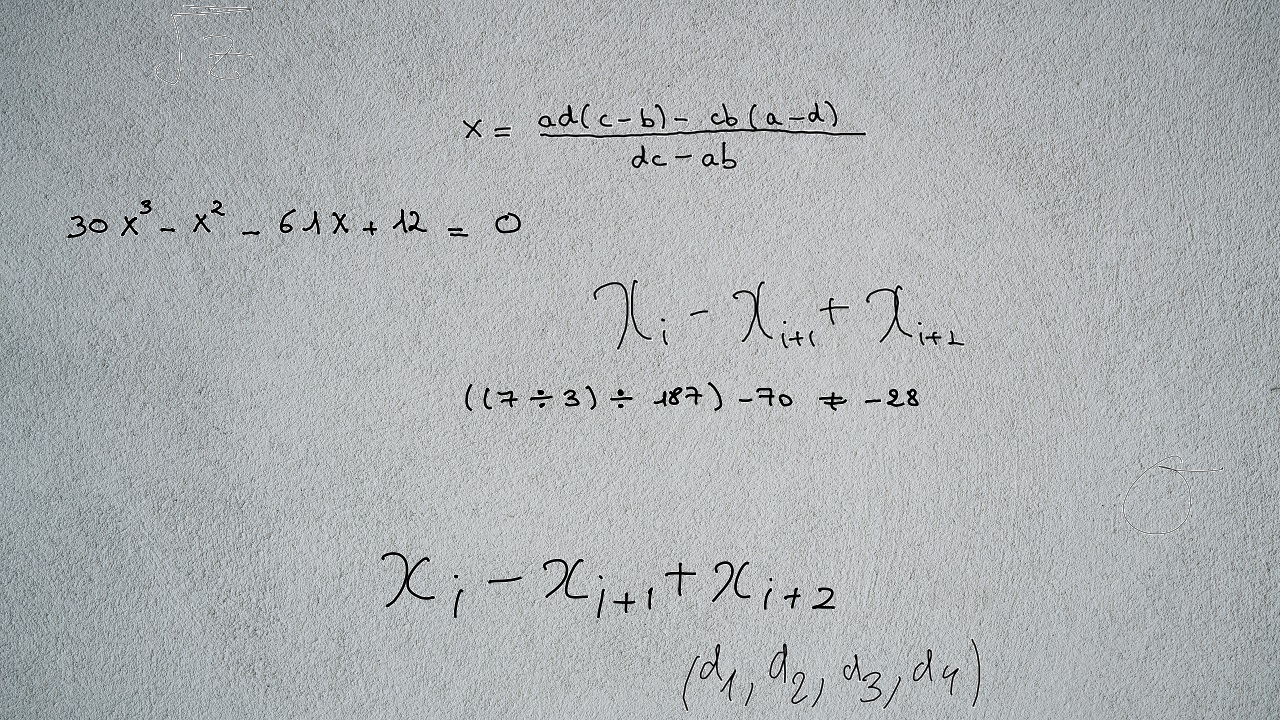 √2
x = \frac{ad(c-b) - cb(a-d)}{dc - ab}
30x³ - x² - 61x + 12 = 0
x_i - x_{i+1} + x_{i+2}
((7 ÷ 3) ÷ 187) - 70 ≠ -28
σ
x_i - x_{i+1} + x_{i+2}
(d_1, d_2, d_3, d_4)